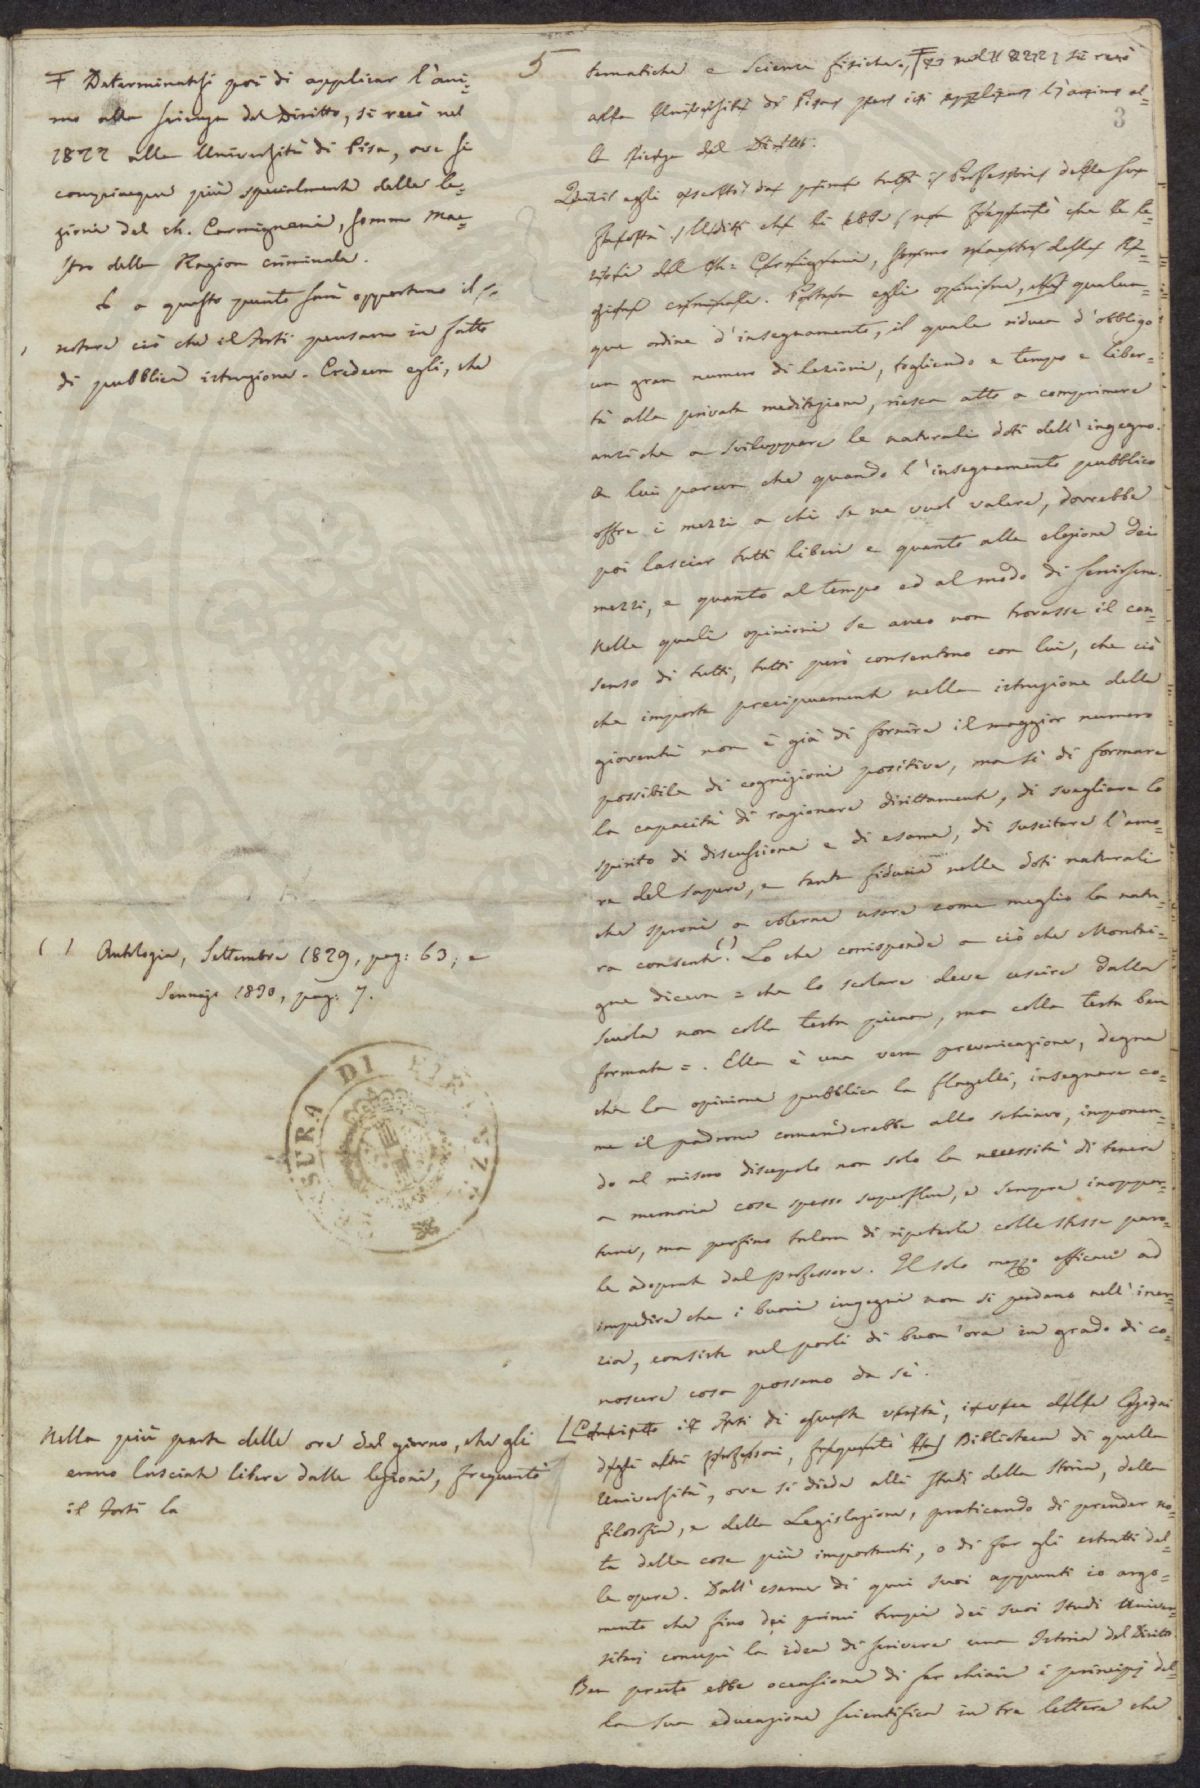 5
3
Ŧ Determinatosi poi di applicar l'ani-
mo alla scienza del Diritto, si recò nel
1822 alla Università di Pisa, ove si
compiacque più specialmente delle le-
zioni del ch. Carmignani, sommo Mae-
stro della Ragion criminale.
E a questo punto sarà opportuno il
notare ciò che il Forti pensava in fatto
di pubblica istruzione. Credeva egli, che
( ) Antologia, Settembre 1829, pag: 63; e
Gennajo 1830, pag: 7.
Nella più parte delle ore del giorno, che gli
erano lasciate libere dalle lezioni, frequentò
il Forti la
tematiche e Scienze fisiche, Ŧ nel 1822 si recò
alla Università di Pisa per ivi applicar l'animo al-
la scienza del Diritto.
Quivi egli ascoltò da primo tutti i Professori della sua
facoltà
zioni del Ch: Carmignani, sommo maestro della Ra-
gione criminale. Portava egli opinione, che qualun-
que ordine d'insegnamento, il quale riduca d'obbligo
un gran numero di lezioni, togliendo e tempo e liber-
tà alla privata meditazione, riesca atto a comprimere
anzi che a sviluppare le naturali doti dell'ingegno.
A lui pareva che quando l'insegnamento pubblico
offre i mezzi a chi se ne vuol valere, dovrebbe
poi lasciar tutti liberi e quanto alla elezione dei
mezzi, e quanto al tempo ed al modo di servirsene.
Nelle quali opinioni se anco non trovasse il con-
senso di tutti, tutti però consentono con lui, che ciò
che importa precipuamente nella istruzione della
gioventù non è già di fornire il maggior numero
possibile di cognizioni positive, ma sì di formare
la capacità di ragionare dirittamente, di svegliare lo
spirito di discussione e di esame, di suscitare l'amo-
re del sapere, e tanta fiducia nelle doti naturali
che sproni a volerne usare come meglio la natu-
ra consente ( ). Lo che corrisponde a ciò che Montai-
gne diceva = che lo scolare deve uscire dalla
scuola non colla testa piena, ma colla testa ben
formata =. Ella è una vera prevaricazione, degna
che la opinione pubblica la flagelli, insegnare co-
me il padrone comanderebbe allo schiavo, imponen-
do al misero discepolo non solo la necessità di tenere
a memoria cose spesso superflue, e sempre inoppor-
tune, ma perfino talora di ripeterle colle stesse paro-
le adoprate dal professore. Il solo mezzo efficace ad
impedire che i buoni ingegni non si perdano nell'iner-
zia, consiste nel porli di buon'ora in grado di co-
noscere cosa possano da sè.
[Convinto il Forti di questa verità, invece delle lezioni
degli altri professori, frequentò la] Biblioteca di quella
Università, ove si diede alli studi della Storia, della
filosofia, e della Legislazione, praticando di prender no-
ta delle cose più importanti, o di far gli estratti del-
le opere. Dall'esame di quei suoi appunti io argo-
mento che fino dei primi tempi dei suoi studi Univer-
sitarj concepì la idea di scrivere una Istoria del Diritto.
Ben presto ebbe occasione di far chiari i principj del-
la sua educazione scientifica in tre lettere che